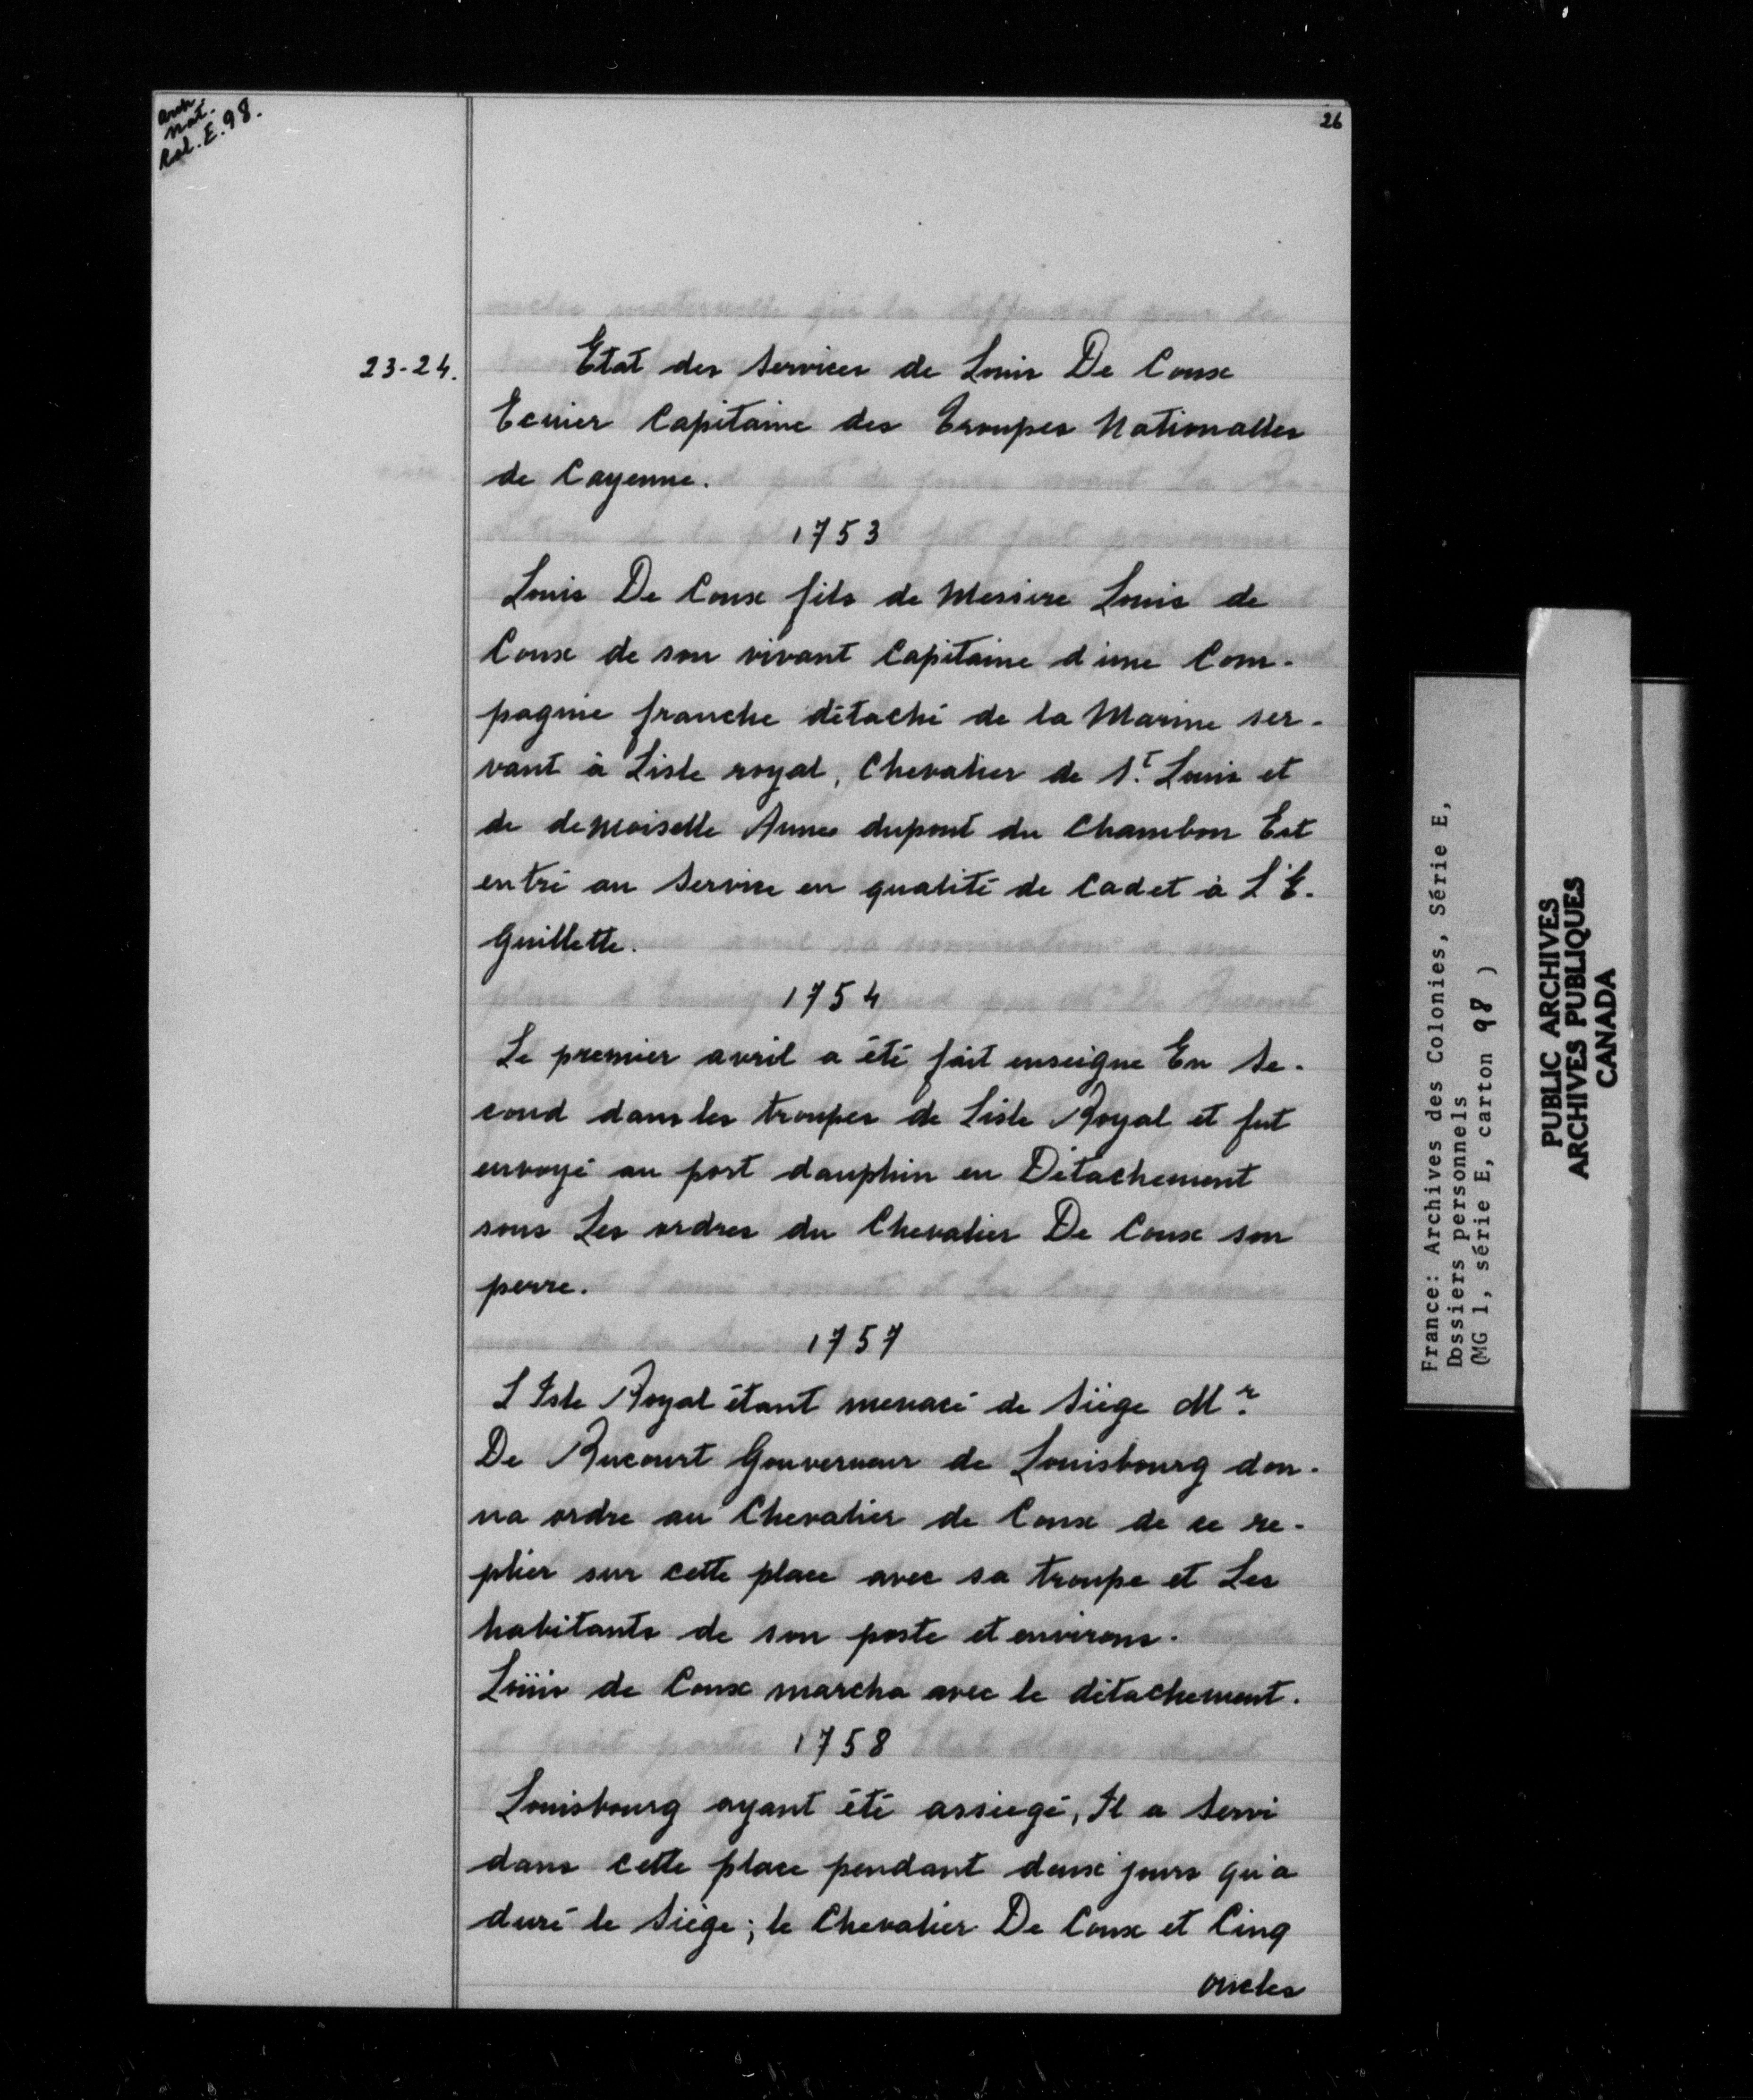 Arch.
Nat.
Col. E. 98.
26
23-24.
Etat des Services de Louis De Coux
Ecuier Capitaine des Troupes Nationalles
de Cayenne.
1753
Louis De Coux fils de Messire Louis de
Coux de son vivant Capitaine d'une Com-
pagnie franche détaché de la Marine ser-
vant à Lisle royal, Chevalier de St. Louis et
de demoiselle Annes dupont du Chambon Est
entré au Service en qualité de Cadet à L'E.
Guillette.
1754
Le premier avril a été fait enseigne En Se-
cond dans les troupes de Lisle Royal et fut
envoyé au port dauphin en Détachement
sous Les ordres du Chevalier De Coux son
perre.
1757
L'Isle Royal étant menacé de Siège Mr.
De Rucourt Gouverneur de Louisbourg don-
na ordre au Chevalier de Coux de ce re-
plier sur cette place avec sa troupe et Les
habitants de son poste et environs.
Loüis de Coux marcha avec le détachement.
1758
Louisbourg ayant été assiegé, Il a Servi
dans cette place pendant deux jours qu'a
duré le Siège; le Chevalier De Coux et Cinq
oncles
France: Archives des Colonies, Série E,
Dossiers personnels
(MG 1, série E, carton 98 )
PUBLIC ARCHIVES
ARCHIVES PUBLIQUES
CANADA